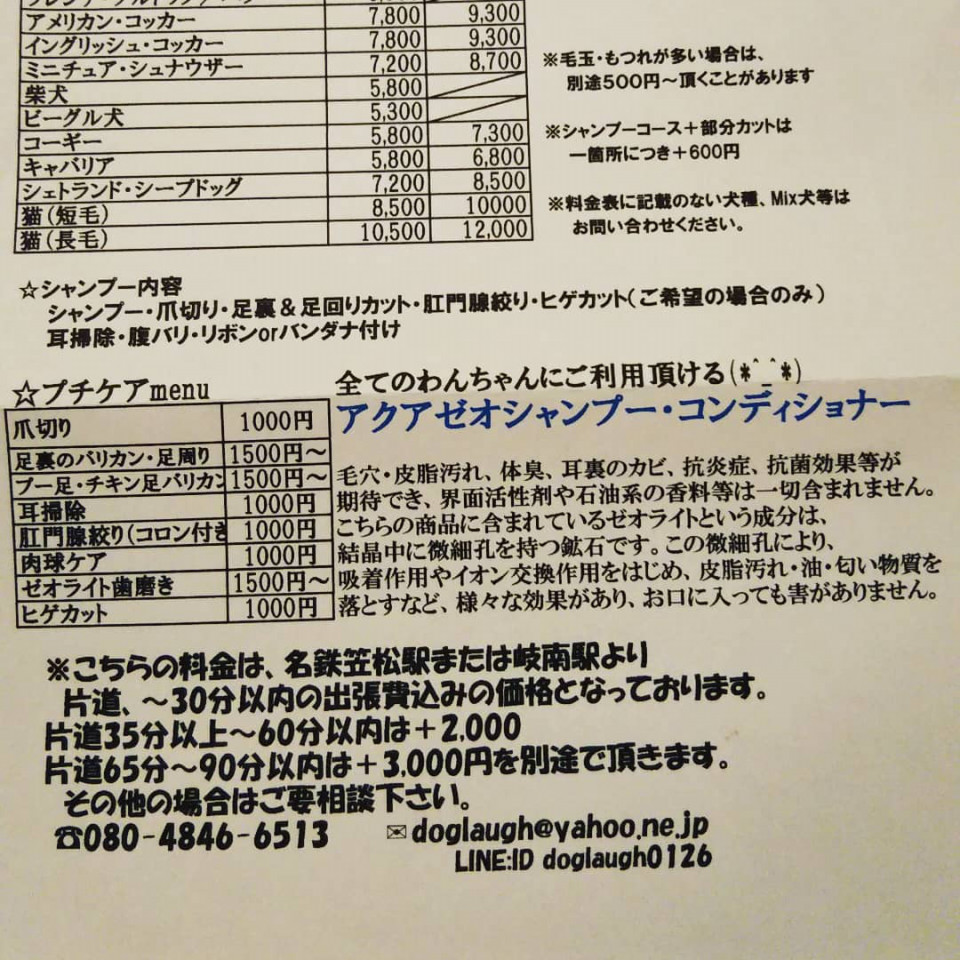 アメリカン・コッカー 7,800 9,300
イングリッシュ・コッカー 7,800 9,300
ミニチュア・シュナウザー 7,200 8,700
柴犬 5,800
ビーグル犬 5,300
コーギー 5,800 7,300
キャバリア 5,800 6,800
シェトランド・シープドッグ 7,200 8,500
猫(短毛) 8,500 10000
猫(長毛) 10,500 12,000
※毛玉・もつれが多い場合は、
別途500円～頂くことがあります
※シャンプーコース＋部分カットは
一箇所につき＋600円
※料金表に記載のない犬種、Mix犬等は
お問い合わせください。
☆シャンプー内容
シャンプー・爪切り・足裏＆足回りカット・肛門腺絞り・ヒゲカット(ご希望の場合のみ)
耳掃除・腹バリ・リボンorバンダナ付け
☆プチケアmenu
爪切り 1000円
足裏のバリカン・足周り 1500円～
プー足・チキン足バリカン 1500円～
耳掃除 1000円
肛門腺絞り(コロン付き 1000円
肉球ケア 1000円
ゼオライト歯磨き 1500円～
ヒゲカット 1000円
全てのわんちゃんにご利用頂ける(*^_^*)
アクアゼオシャンプー・コンディショナー
毛穴・皮脂汚れ、体臭、耳裏のカビ、抗炎症、抗菌効果等が
期待でき、界面活性剤や石油系の香料等は一切含まれません。
こちらの商品に含まれているゼオライトという成分は、
結晶中に微細孔を持つ鉱石です。この微細孔により、
吸着作用やイオン交換作用をはじめ、皮脂汚れ・油・匂い物質を
落とすなど、様々な効果があり、お口に入っても害がありません。
※こちらの料金は、名鉄笠松駅または岐南駅より
片道、～30分以内の出張費込みの価格となっております。
片道35分以上～60分以内は＋2,000
片道65分～90分以内は＋3,000円を別途で頂きます。
その他の場合はご要相談下さい。
☎080-4846-6513 ✉doglaugh@yahoo.ne.jp
LINE:ID doglaugh0126